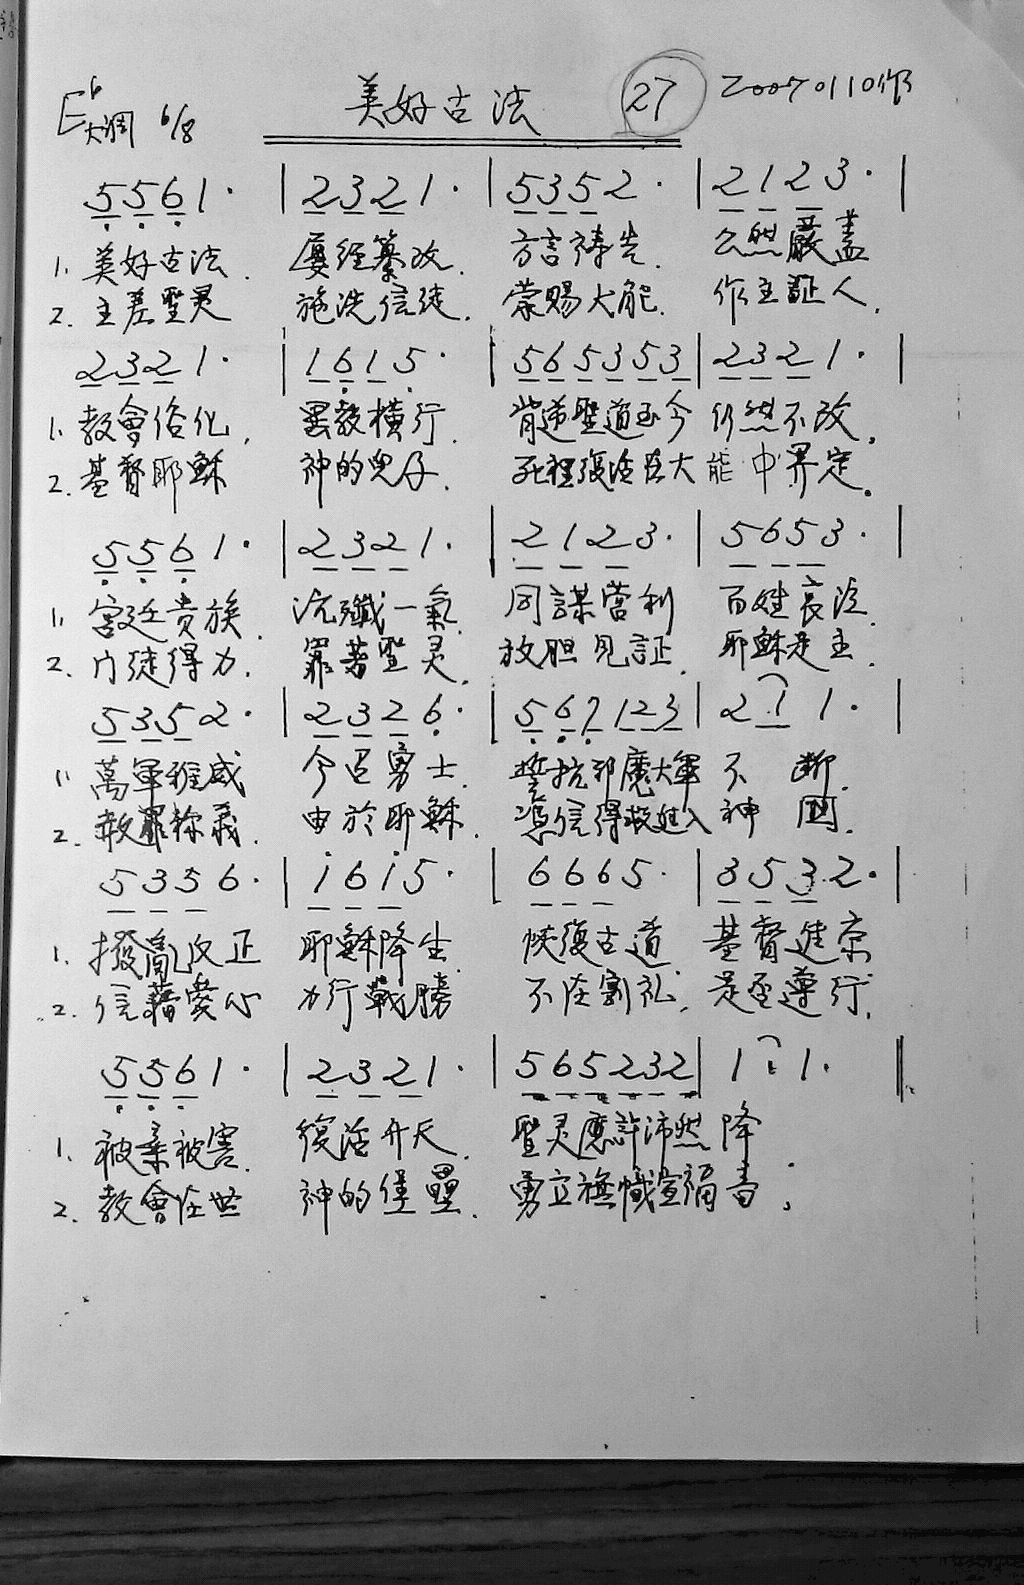 E♭大调 6/8 美好古法 27 20070110作
5 5 6 1· | 2 3 2 1· | 5 3 5 2· | 2 1 2 3· |
1. 美好古法. 屡經篡改. 方言祷告. 公然嚴蓋
2. 主差聖灵 施洗信徒. 蒙赐大能. 作主証人.
2 3 2 1· | 1 6 1 5· | 5 6 5 3 5 3 | 2 3 2 1· |
1. 教會俗化. 异教横行. 背逆聖道至今 仍然不改.
2. 基督耶穌 神的兒子. 死裡復活 大能中界定.
5 5 6 1· | 2 3 2 1· | 2 1 2 3· | 5 6 5 3· |
1. 宫廷贵族. 沆瀣一氣. 同謀营利 百姓哀泣.
2. 门徒得力. 靠著聖灵. 放胆見証. 耶穌是主.
5 3 5 2· | 2 3 2 6· | 5 6 7 1 2 3 | 2 1 1· |
1. 萬軍權威 今召勇士. 誓抗邪魔大軍 不 断.
2. 赦罪称義. 由於耶穌. 憑信得救進入 神 国.
5 3 5 6· | i 6 i 5· | 6 6 6 5· | 3 5 3 2· |
1. 撥亂反正 耶穌降生. 恢復古道 基督進京
2. 信藉愛心 力行戰勝 不在割礼. 是否遵行.
5 5 6 1· | 2 3 2 1· | 5 6 5 2 3 2 | 1 1 1· ‖
1. 被棄被害. 復活升天. 聖灵應許沛然 降
2. 教會在世 神的堡壘. 勇立旗幟宣福音.